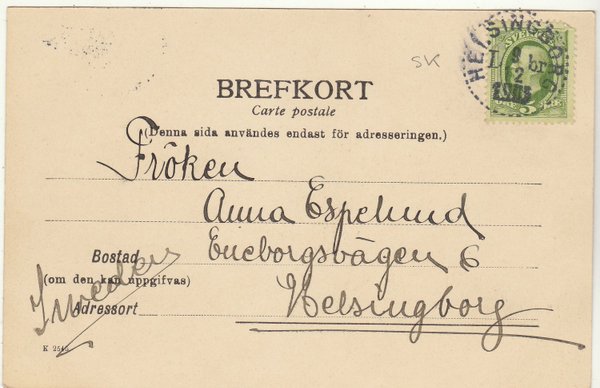 HELSINGBORG
L br
9
2
SVERIGE
SK
BREFKORT
Carte postale
(Denna sida användes endast för adresseringen.)
Fröken
Anna Espelund
Eneborgsvägen 6
Bostad
(om den kan uppgifvas)
Helsingborg
Adressort
Sweden
K 2545